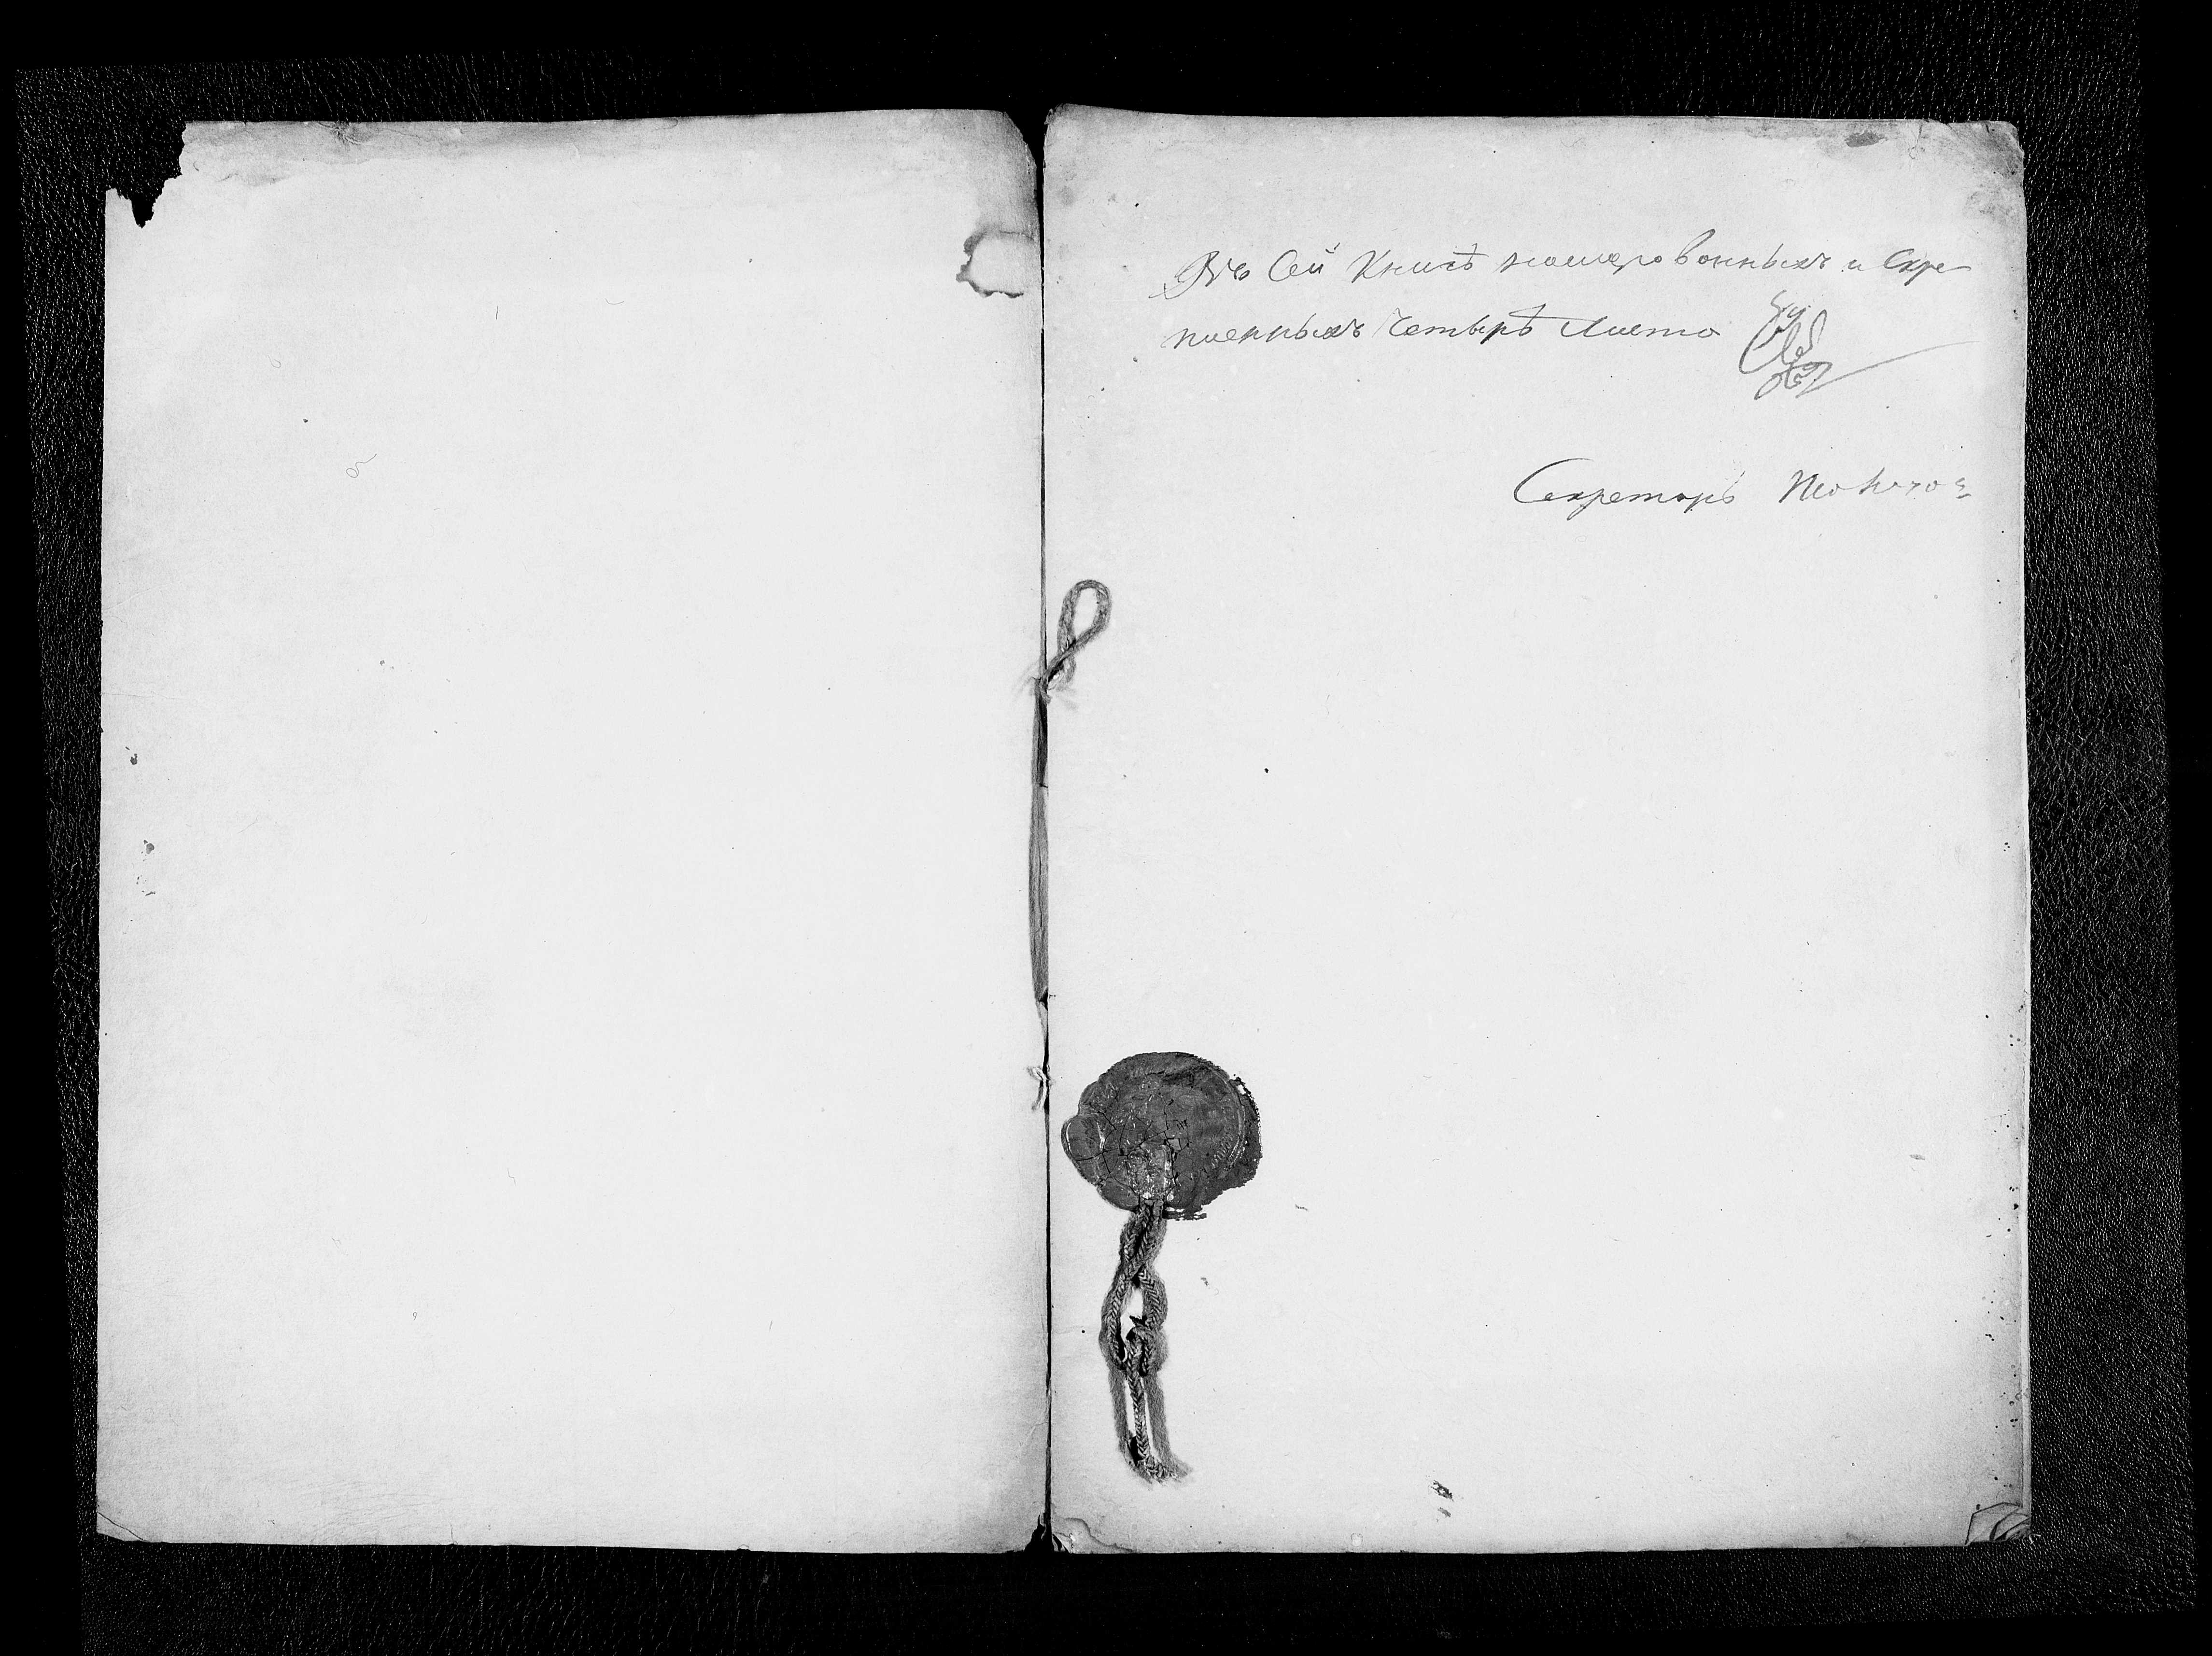 Въ Сей Книгѣ номерованныхъ и Скре-
пленныхъ Четырѣ Листа
Секретарь